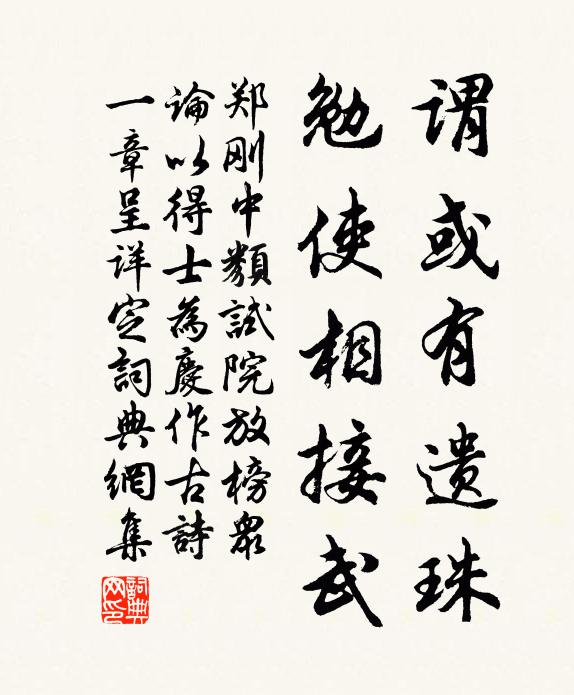 谓或有遗珠
勉使相接武
郑刚中類試院放榜眾
論以得士為慶作古詩
一章呈详定詞典網集
詞典网印